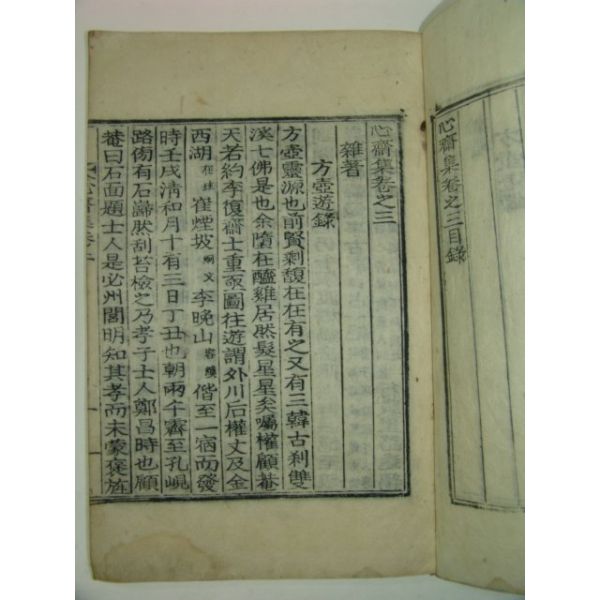 心齋集卷之三目錄
心齋集卷之三
雜著
方壺遊錄
方壺靈源也前賢剩馥在在有之又有三韓古刹雙
溪七佛是也余隨在醯雞居然髮星星矣囑權顧菴
天若約李復齋士重亟圖往遊謂外川后權丈及金
西湖 崔煙坡 李晚山 偕至一宿而發
時壬戌淸和月十有三日丁丑也朝雨乍霽至孔峴
路傍有石巋然刮苔檢之乃孝子士人鄭昌時也顧
菴曰石面題士人是必州閭明知其孝而未蒙褒旌